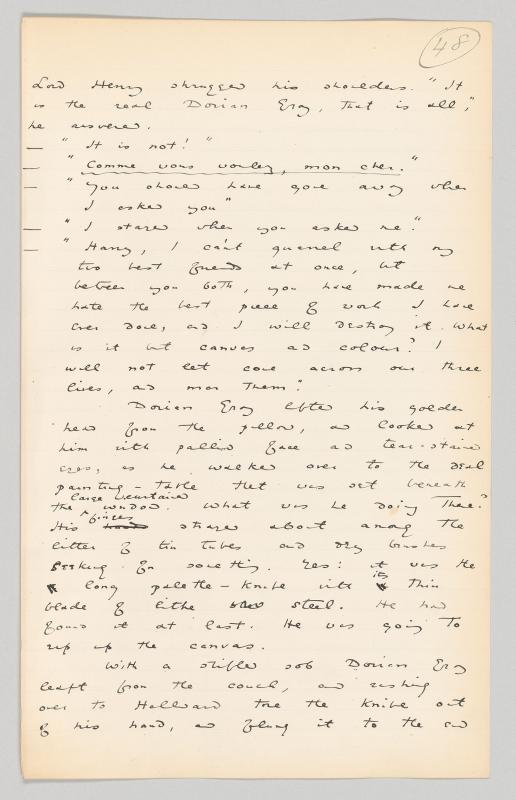 48
Lord Henry shrugged his shoulders. "It
is the real Dorian Gray, that is all,"
he answered.
— "It is not!"
— "Comme vous voulez, mon cher."
— "You should have gone away when
I asked you"
— "I stayed when you asked me."
— "Harry, I can't quarrel with my
two best friends at once, but
between you both, you have made me
hate the best piece of work I have
ever done, and I will destroy it. What
is it but canvas and colour? I
will not let it come across our three
lives, and mar them."
Dorian Gray lifted his golden
head from the pillow, and looked at
him with pallid face and tear-stained
eyes, as he walked over to the deal
painting-table that was set beneath
large curtained
the ^ window. What was he doing there?
fingers
His hand strayed about among the
litter of tin tubes and dry brushes
seeking for something. Yes: it was the
long palette-knife with
its
thin
blade of lithe steel. He had
found it at last. He was going to
rip up the canvas.
With a stifled sob Dorian Gray
leapt from the couch, and rushing
over to Hallward tore the knife out
of his hand, and flung it to the end